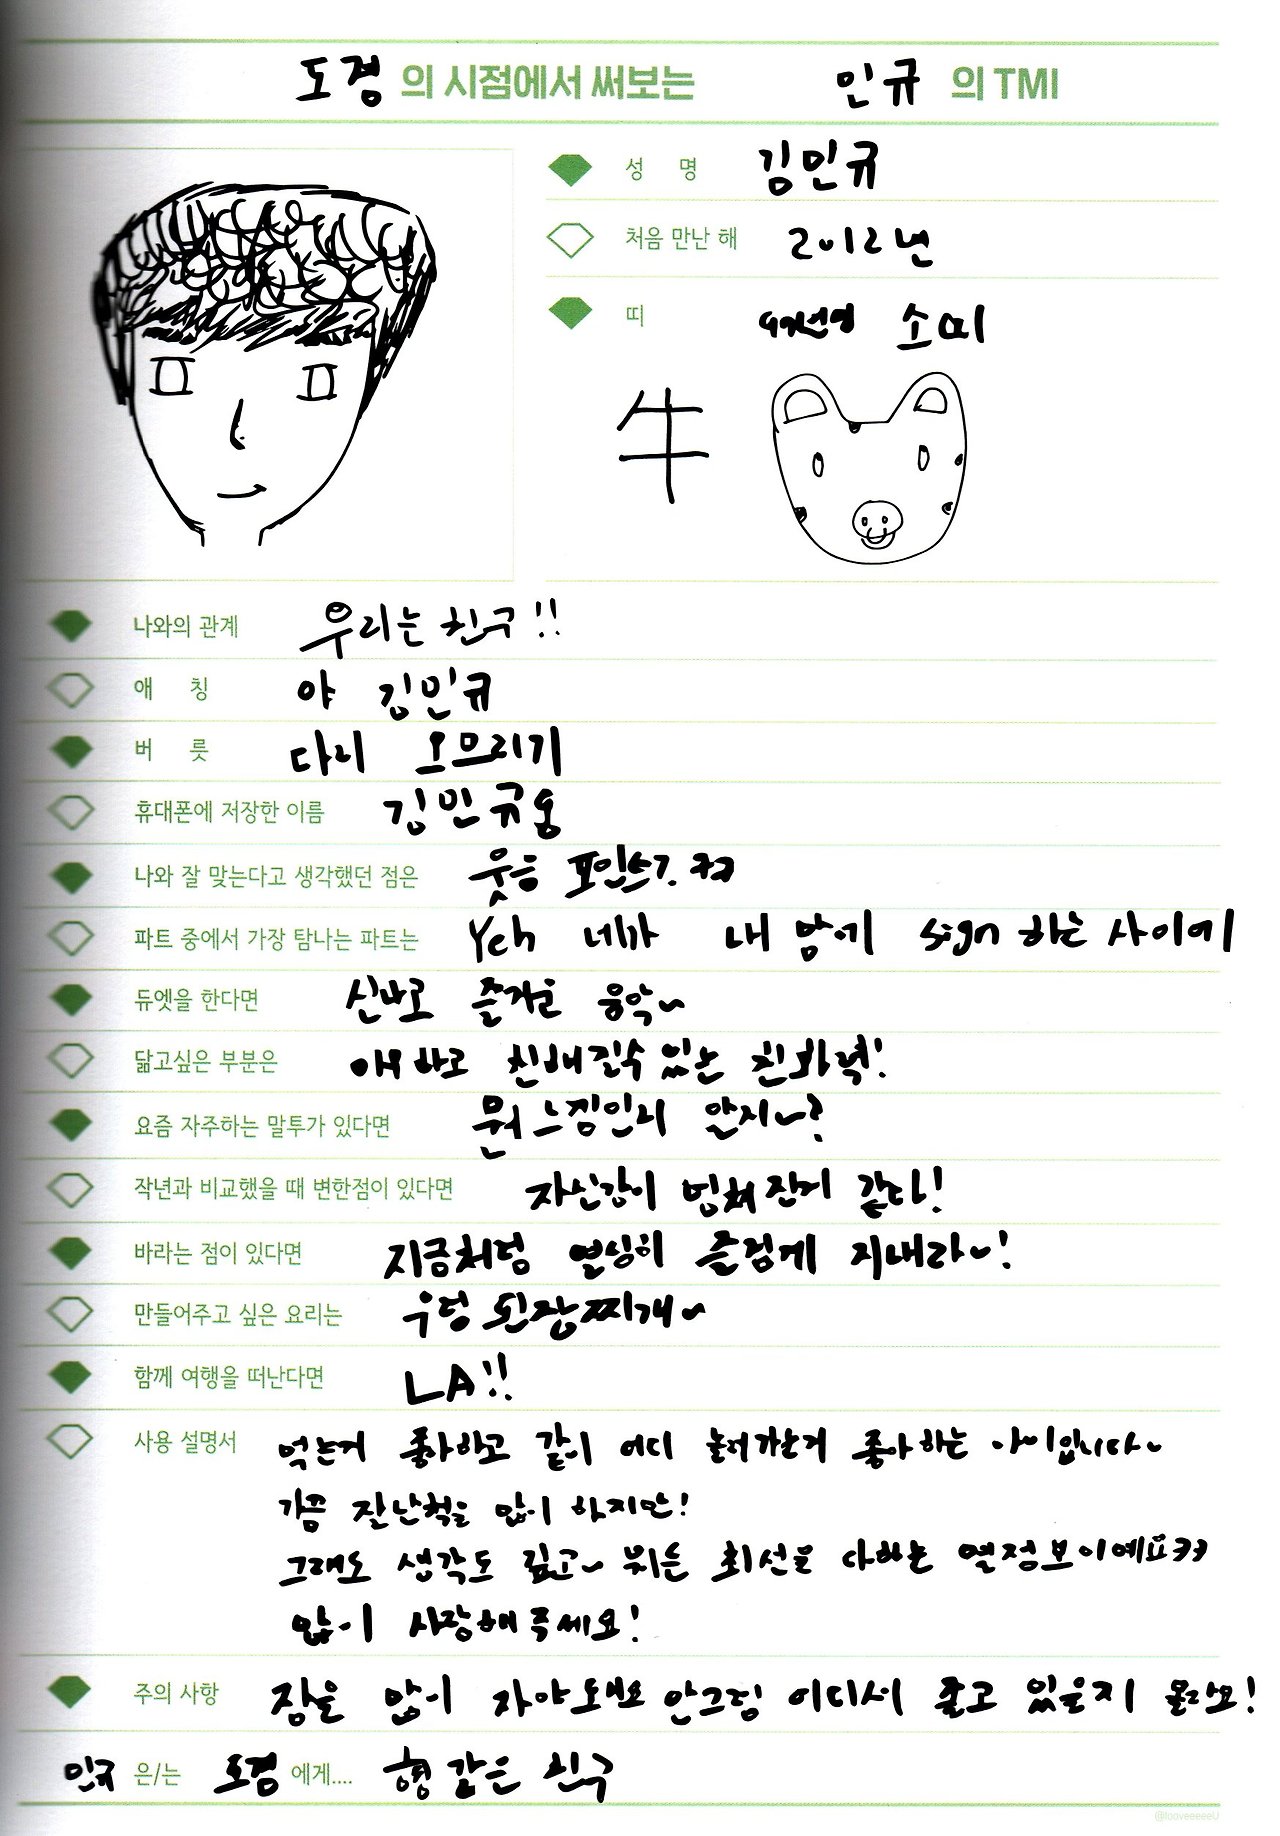 도겸의 시점에서 써보는 민규의 TMI
성 명 김민규
처음 만난 해 2012년
띠 97년생 소띠
牛
나와의 관계 우리는 친구!!
애 칭 야 김민규
버 릇 다리 오므리기
휴대폰에 저장한 이름 김민규옹
나와 잘 맞는다고 생각했던 점은 웃음 포인트?. ㅋㅋ
파트 중에서 가장 탐나는 파트는 Yeh 네가 내 맘에 sign 하는 사이에
듀엣을 한다면 신나고 즐거운 음악~
닮고싶은 부분은 여러 친해질수 있는 친화력!
요즘 자주하는 말투가 있다면 뭔 느낌인지 알지~?
작년과 비교했을 때 변한점이 있다면 자신감이 넘쳐진게 같다!
바라는 점이 있다면 지금처럼 열심히 즐겁게 지내라~!
만들어주고 싶은 요리는 우렁 된장찌개~
함께 여행을 떠난다면 LA!!
사용 설명서 먹는거 좋아하고 같이 어디 놀러가는거 좋아하는 아이입니다~
가끔 잘난척을 많이 하지만!
그래도 생각도 깊고~ 뭐든 최선을 다하는 열정보이예요ㅋㅋ
많이 사랑해 주세요!
주의 사항 잠을 많이 자야 돼요 안그럼 어디서 졸고 있을지 몰라요!
민규 은/는 도겸 에게.... 형 같은 친구
@looveeeeeU